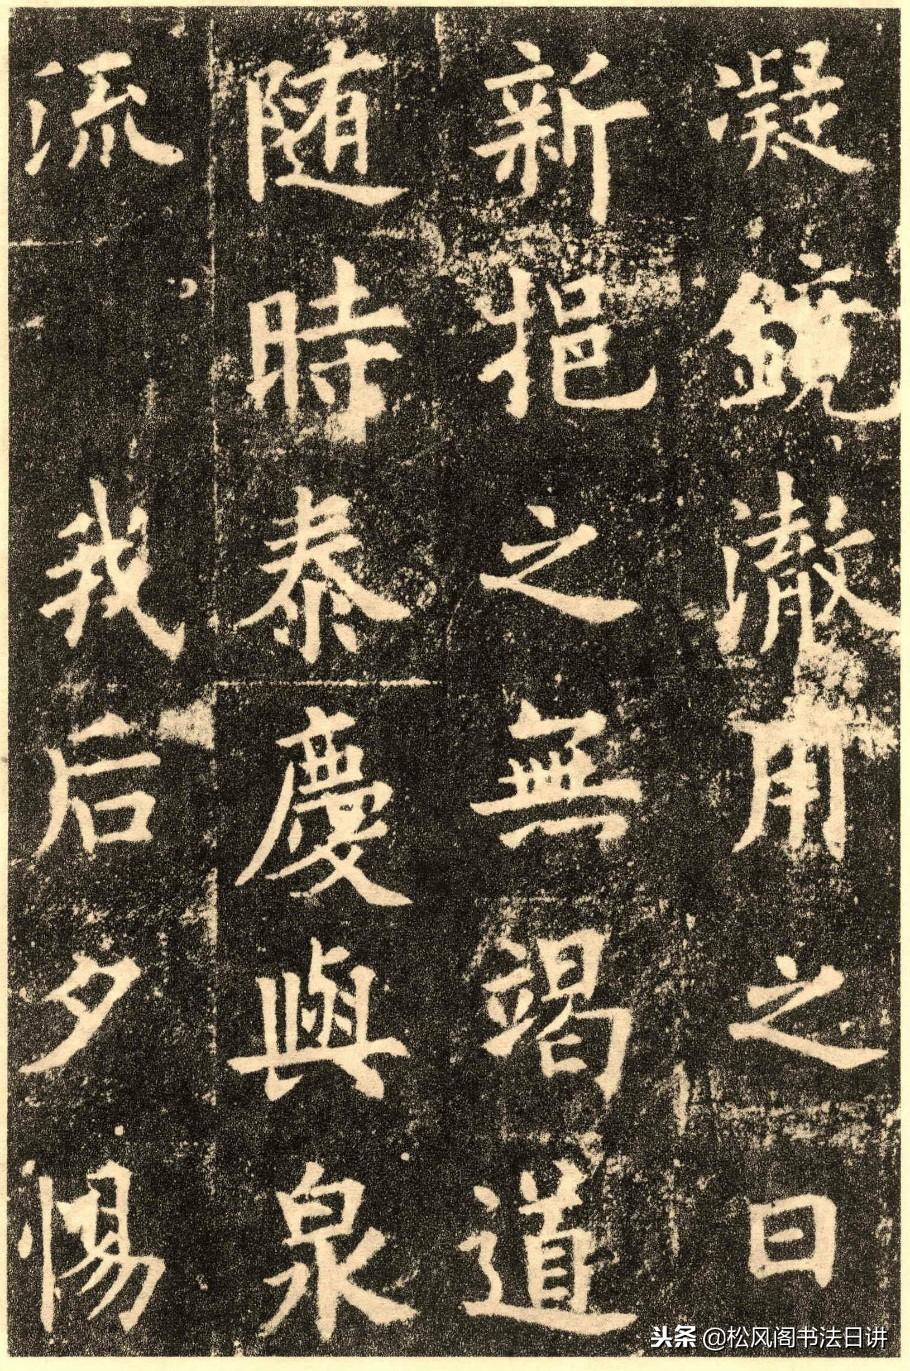 凝鏡澈用之日
新挹之無竭道
随時泰慶與泉
流我后夕惕
头条 @松风阁书法日讲